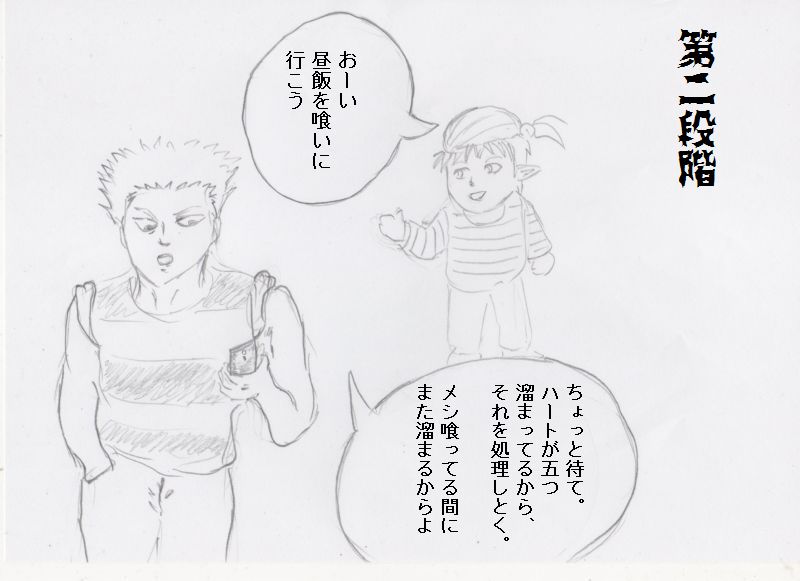 第二段階
おーい
昼飯を喰いに
行こう
ちょっと待て。
ハートが五つ
溜まってるから、
それを処理しとく。
メシ喰ってる間に
また溜まるからよ